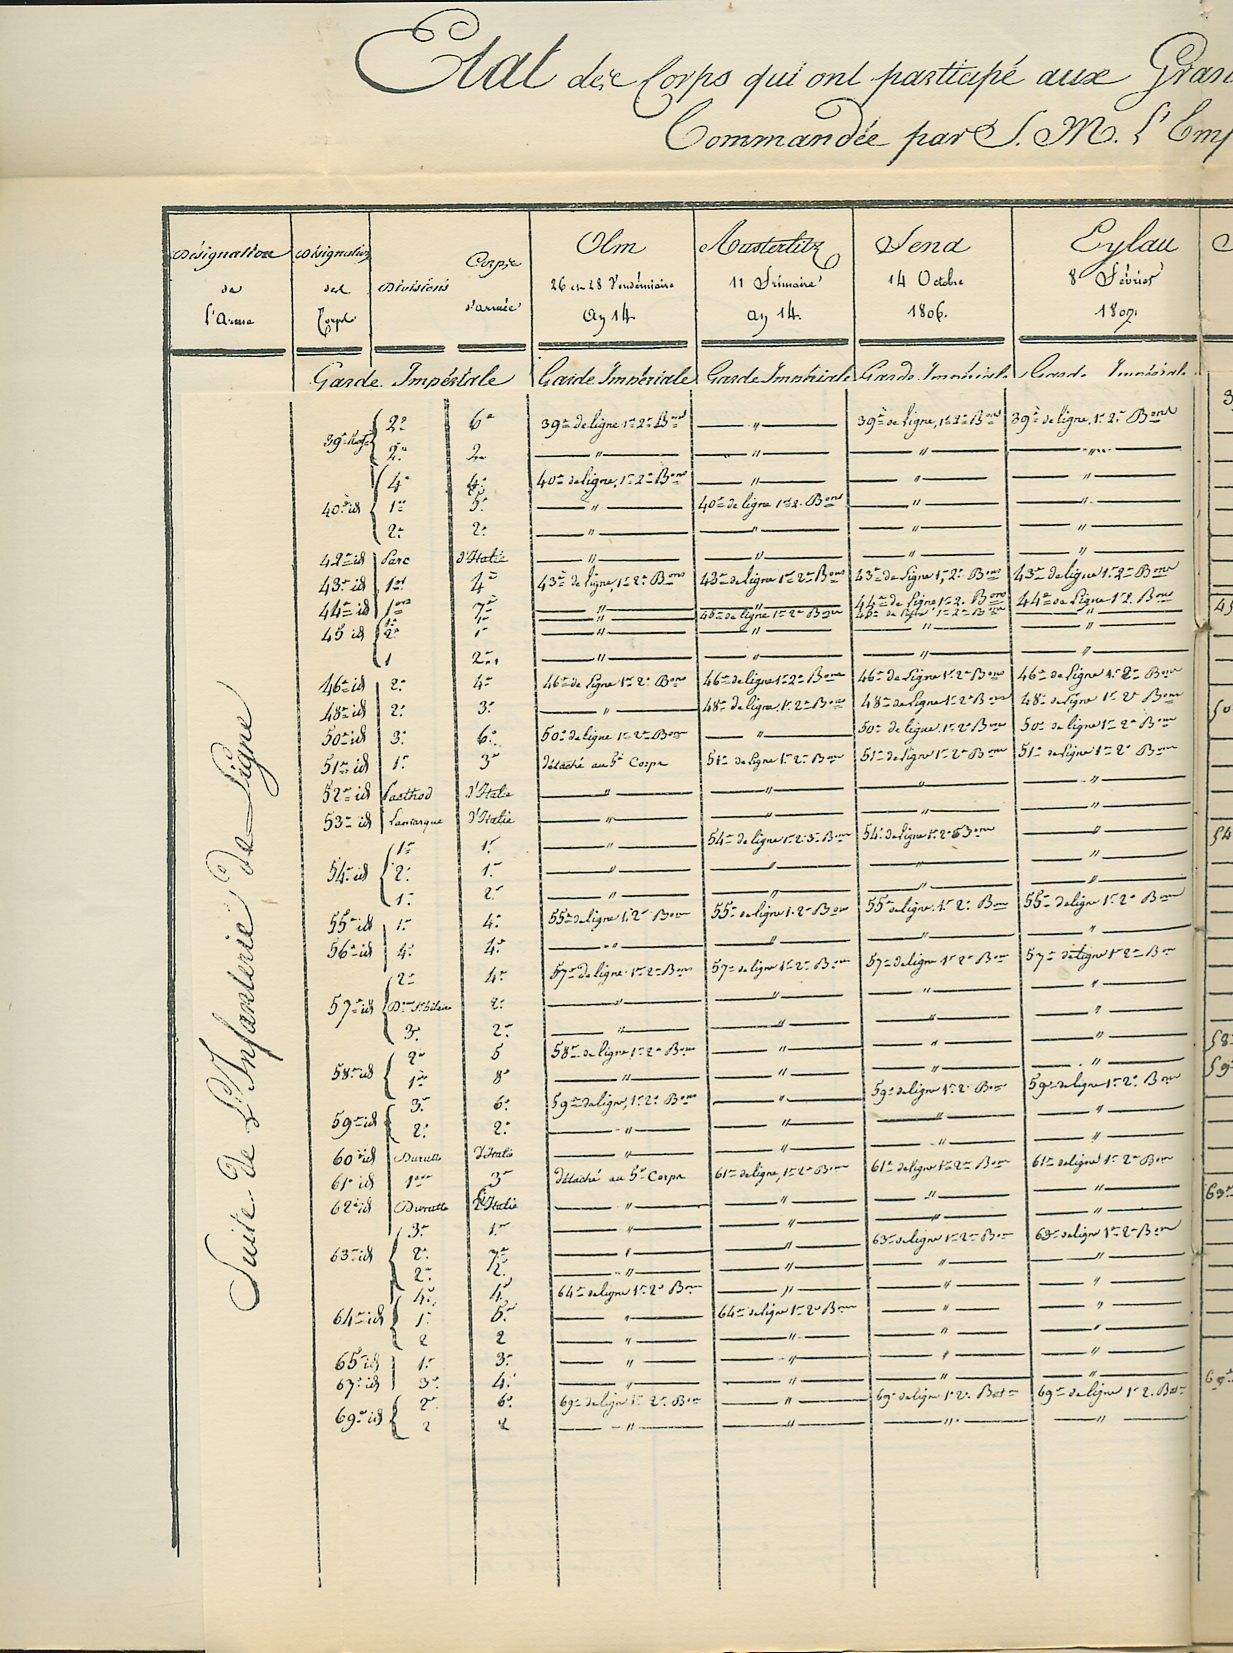 Etat des Corps qui ont participé aux Gran
Commandée par S. M. l'Emp
Désignation de l'Arme
Désignation des Corps
Divisions
Corps d'armée
Ulm 26 et 28 Vendémiaire An 14.
Austerlitz 11 Frimaire An 14.
Jena 14 Octobre 1806.
Eylau 8 Février 1807.
Garde Impériale Garde Impériale Garde Impériale Garde Impériale Garde Impériale
Suite de L'Infanterie de Ligne
39e 2e 6e 39e de ligne, 1er 2e Bons " 39e de ligne, 1er 2e Bons 39e de ligne, 1er 2e Bons
2e 2e " " " "
40e id 4e 4e 40e de ligne, 1er 2e Bons " " "
1re 5e " 40e de ligne 1er 2e Bons " "
2e 2e " " " "
42e id d'Italie " " " "
43e id 1re 4e 43e de ligne, 1er 2e Bons 43e de ligne 1er 2e Bons 43e de Ligne 1er 2e Bons 43e de ligne 1er 2e Bons
44e id 1re 7e " " 44e de Ligne 1er 2e Bons 44e de Ligne 1er 2e Bons
45 id 1re " 45e de ligne 1er 2e Bons 45e de ligne 1er 2e Bons "
2e 1er " " " "
1 2e " " "
46e id 2e 4e 46e de Ligne 1er 2e Bons 46e de Ligne 1er 2e Bons 46e de Ligne 1er 2e Bons 46e de Ligne 1er 2e Bons
48e id 2e 3e " 48e de ligne, 1er 2e Bons 48e de Ligne 1er 2e Bons 48e de Ligne 1er 2e Bons
50e id 3e 6e 50e de ligne 1er 2e Bons " 50e de ligne 1er 2e Bons 50e de ligne 1er 2e Bons
51e id 1re 3e détaché au 5e Corps 51e de Ligne 1er 2e Bons 51e de Ligne 1er 2e Bons 51e de Ligne 1er 2e Bons
52e id d'Italie " " " "
53e id Lamarque d'Italie " " "
54e id 1re 1er " 54e de ligne 1er 2e 3e Bons 54e de Ligne 1er 2e "
2e 1er " " " "
1re 2e " " "
55e id 1re 4e 55e de ligne 1er 2e Bons 55e de ligne 1er 2e Bons 55e de ligne 1er 2e Bons 55e de ligne 1er 2e Bons
56e id 4e 4e " " " "
57e id 2e 4e 57e de ligne 1er 2e Bons 57e de ligne 1er 2e Bons 57e de ligne 1er 2e Bons 57e de ligne 1er 2e Bons
Don St hilaire 2e " " " "
3e 2e " " " "
58e id 2e 5 58e de ligne 1er 2e Bons " " "
1re 8e " " "
59e id 3e 6e 59e de ligne, 1er 2e Bons " 59e de ligne 1er 2e Bons 59e de ligne 1er 2e Bons
2e 2e " " " "
60e id Durutte d'Italie " " "
61e id 1re 3e détaché au 5e Corps 61e de ligne, 1er 2e Bons 61e de ligne 1er 2e Bons 61e de ligne 1er 2e Bons
62e id Durutte d'Italie " " " "
63e id 3e 1er " " 63e de ligne 1er 2e Bons 63e de ligne 1er 2e Bons
2e 7e " " " "
2e 2e " " "
64e id 4e 4e 64e de ligne 1er 2e Bons " " "
1re 5e " 64e de ligne 1er 2e Bons " "
2 2 " " " "
65e id 1re 3e " " " "
67e id 3e 4e " " " "
69e id 2e 6e 69e de ligne 1er 2e Bons " 69e de ligne 1er 2e Bat 69e de ligne 1er 2e Bat
2 2 " " " "